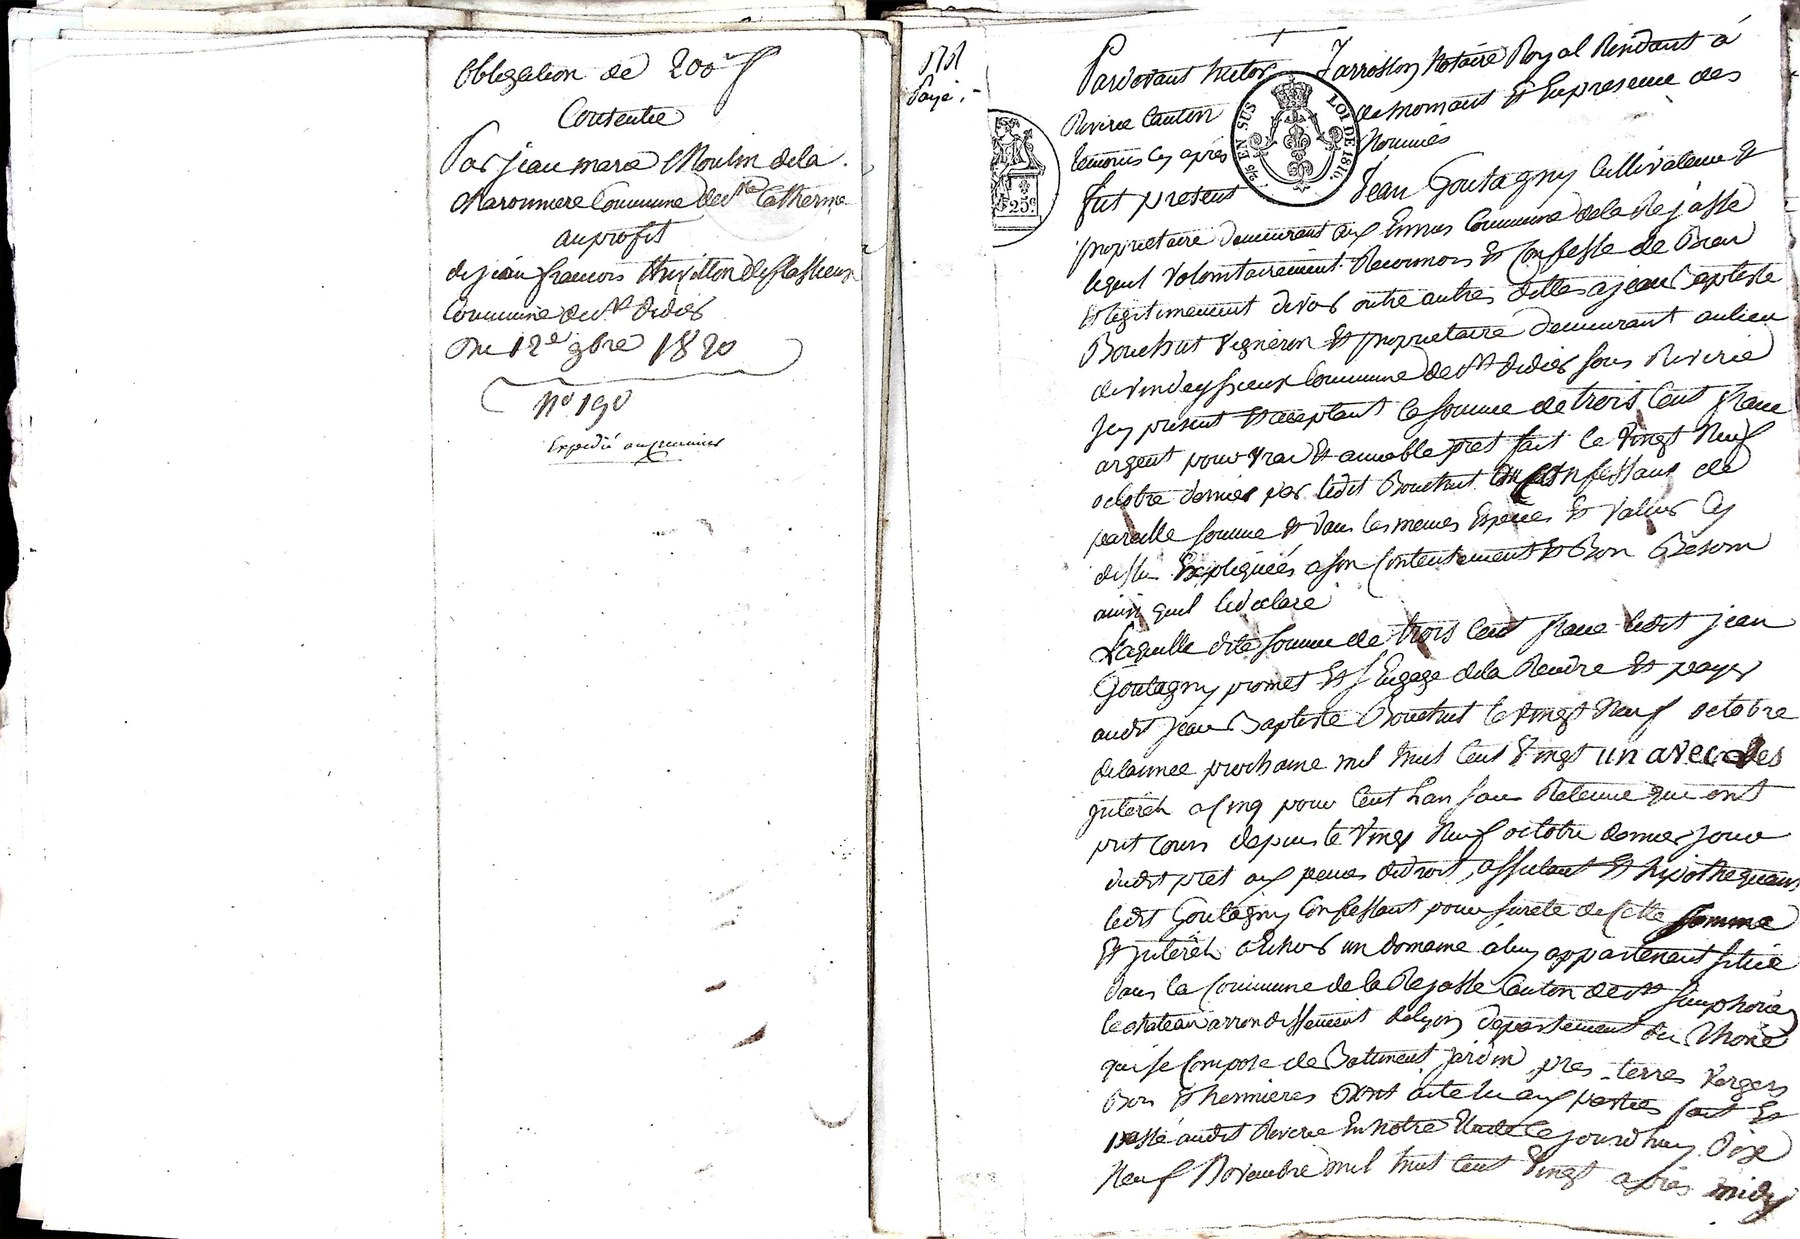 Obligation de 200 f
Consentie
Par jean marie Moulin dela
Maronniere Commune de Ste Catherine
au profit
de jean francois Thevillon
Commune de St didier
Du 12e 9bre 1820
No 190
Expedié au creancier
Payé
Pardevant Jarrosson Notaire Royal Residant à
Riverie Canton de mornant Et En presence des
temoins Cy apres Nommés
EN SUS LOI DE 1816.
25c
fut present Jean Goutagny Cultivateur Et
proprietaire demeurant aux Commune dela Rejasse
lequel volontairement Reconnoit Et Confesse de Bien
Et legitimement devoir outre autres dettes a jean Baptiste
Bouchut vigneron Et proprietaire demeurant au lieu
de Commune de St didier sous Riverie
Icy present Et aceptant la somme de trois Cent franc
argent pour vrai Et amiable pret fait le vingt Neuf
octobre dernier par ledit Bouchut au Confessant de
pareille somme Et dans les memes Espèces Et valeur Cy
dessus Expliquées a son Contentement Et Bon Besoin
ainsi quil le declare
Laquelle dite somme de trois Cent franc ledit jean
Goutagny promet Et s'Engage dela Rendre Et payer
audit Jean Baptiste Bouchut le vingt Neuf octobre
delannée prochaine mil huit Cent vingt un avec les
Interêt a Cinq pour Cent Lan sans Retenue qui ont
prit Cours depuis le vingt Neuf octobre dernier jour
dudit pret aux peines de droit, affectant Et hipothequant
ledit Goutagny Confessant pour sureté de Cette somme
Et Interêt a Echoir un domaine à luy appartenant situé
dans la Commune de la Rejasse Canton de St Simphorien
le chateau arrondissement de Lyon departement du Rhone
qui se Compose de Batiment, jardin, prés, terres vergers
Bois Et hermieres Dont acte lu aux parties fait Et
passé audit Riverie En Notre Etude Ce jourdhuy Dix
Neuf Novembre mil huit Cent vingt après midy